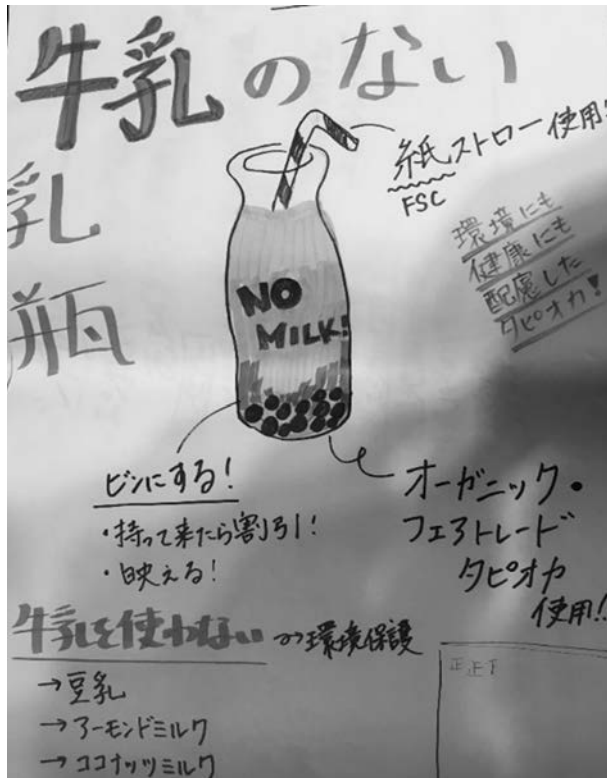 牛乳のない
乳
瓶
紙ストロー使用!
FSC
環境にも
健康にも
配慮した
タピオカ!
NO
MILK!
ビンにする!
・持って来たら割引!
・映える!
オーガニック・
フェアトレード
タピオカ
使用!!
牛乳を使わない →環境保護
→豆乳
→アーモンドミルク
→ココナッツミルク
正正下